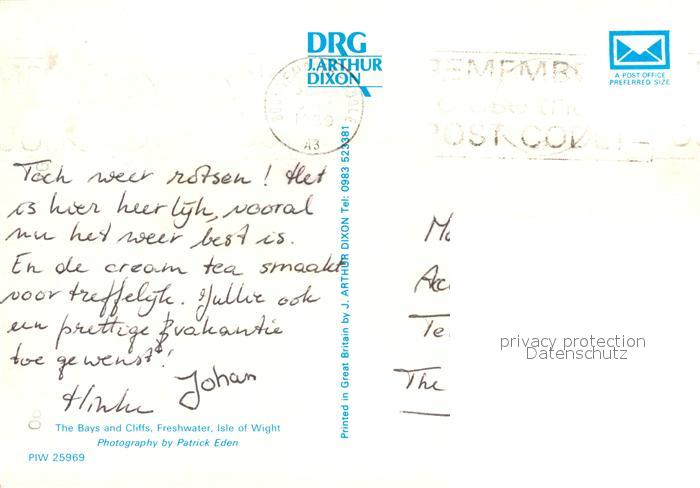 DRG
J.ARTHUR
DIXON
A POST OFFICE
PREFERRED SIZE
REMEMB
POST CODE
A3
Toch weer rotsen! Het
is hier heerlijk, vooral
nu het weer best is.
En de cream tea smaakt
voortreffelijk. Jullie ook
een prettige vakantie
toegewenst!
Johan
Hinke
Printed in Great Britain by J. ARTHUR DIXON Tel: 0983 523381
The
privacy protection
Datenschutz
The Bays and Cliffs, Freshwater, Isle of Wight
Photography by Patrick Eden
PIW 25969